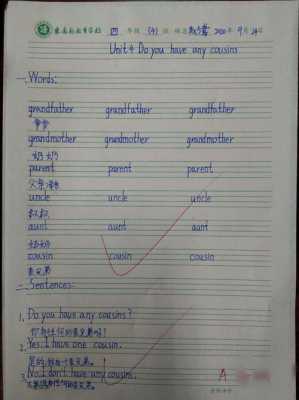 四 年级 (4) 班 2020 年 9 月 24 日
Unit 4 Do you have any cousins
一、Words:
grandfather grandfather grandfather
爷爷
grandmother grandmother grandmother
奶奶
parent parent parent
父亲/母亲
uncle uncle uncle
叔叔
aunt aunt aunt
姑姑
cousin cousin cousin
表兄弟
二、Sentences:
1. Do you have any cousins?
你有任何的表兄弟吗?
2. Yes. I have one cousin.
是的,我有一个表兄弟。
3. No. I don't have any cousins.
A